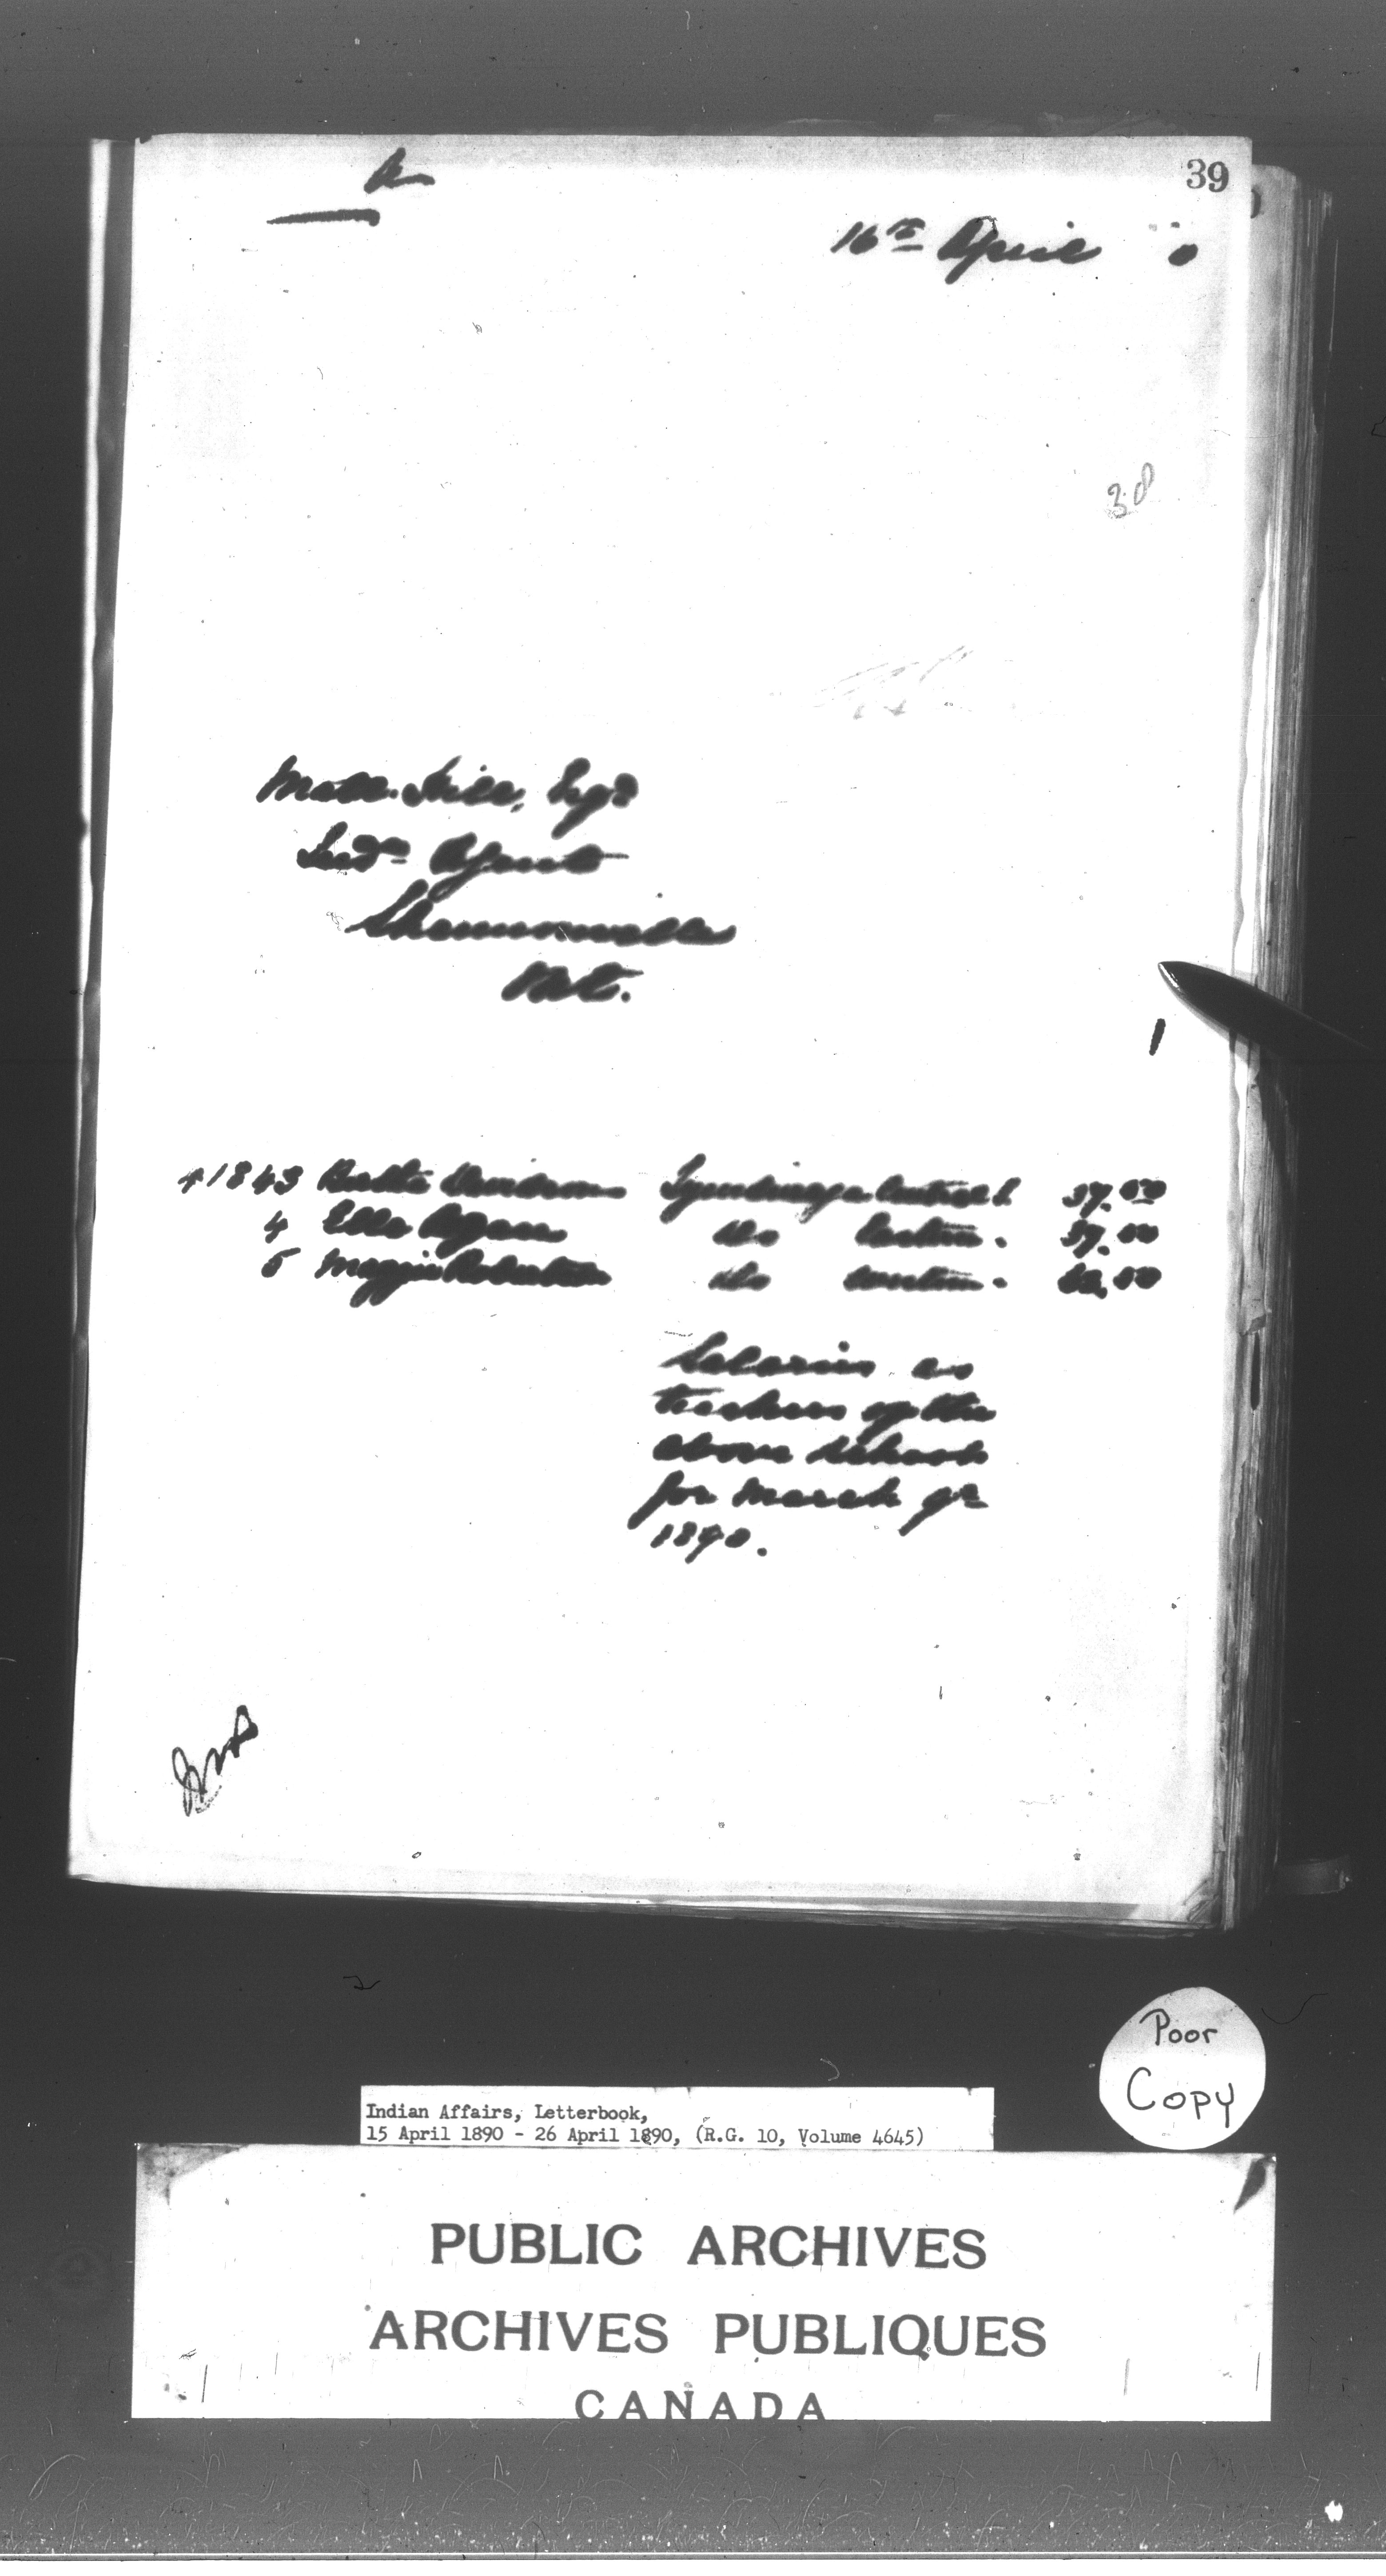 39
16th April 0
38
Matt. Hill, Esqr
Indn Agent
Shannonville
Ont.
1843 Davidson Tyendinaga Central 37.50
4 Ella do Eastern. 37.50
5 Maggie Robertson do Western. 62.50
Salaries as
teachers of the
above schools
for March qr
1890.
Poor
Copy
Indian Affairs, Letterbook,
15 April 1890 - 26 April 1890, (R.G. 10, Volume 4645)
PUBLIC ARCHIVES
ARCHIVES PUBLIQUES
CANADA